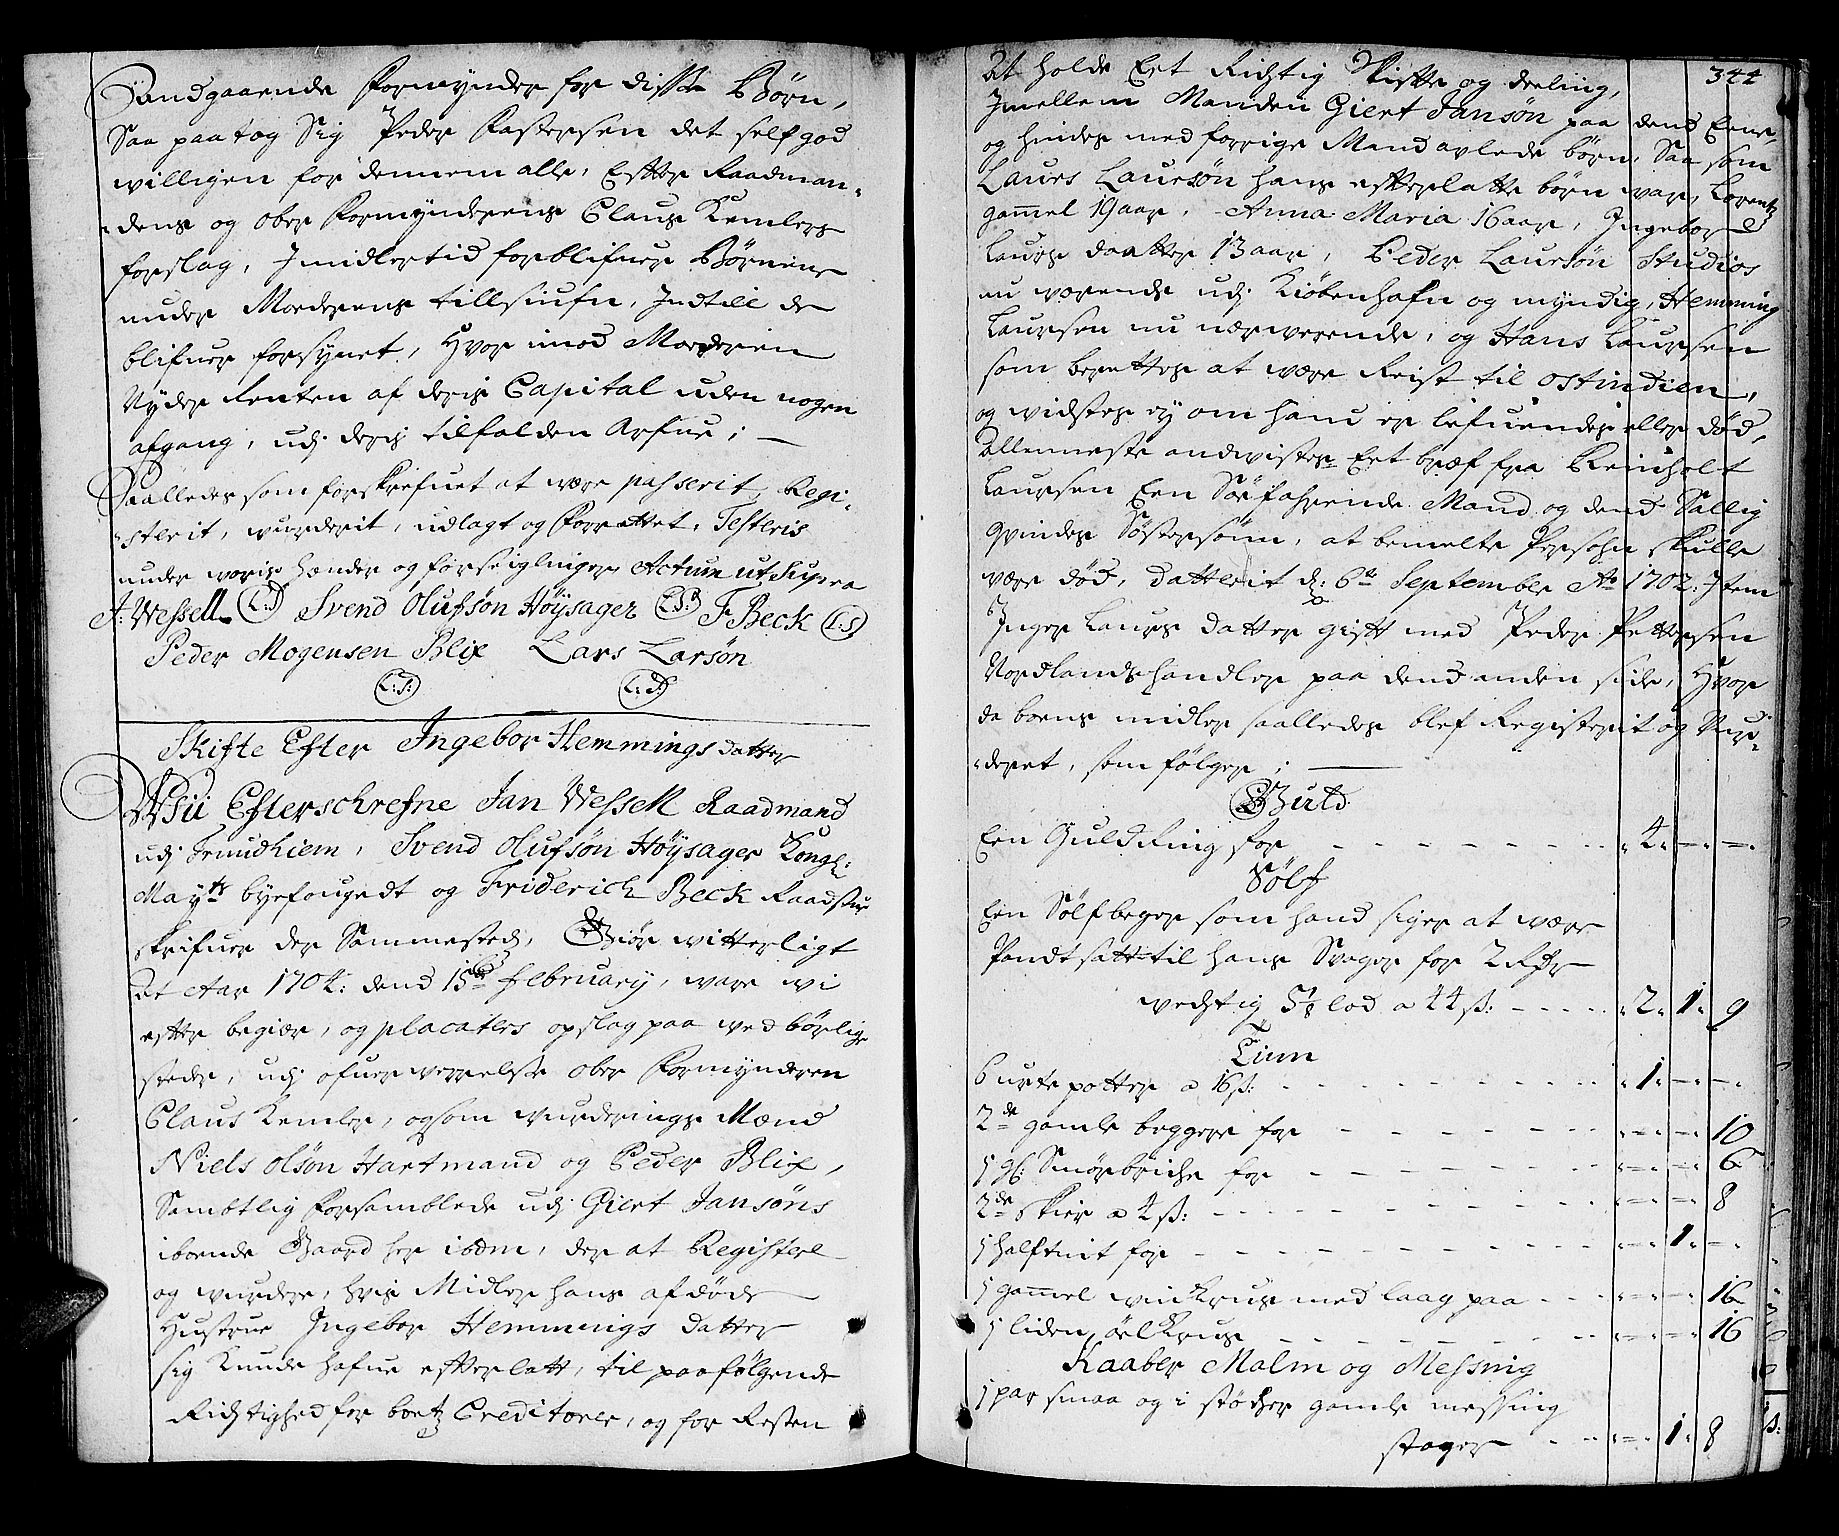 Handgaaende Formynder for disse Børn,
Saa paatog Sig Peder Castersen det self god
willigen for dennem alle, Effter Raadman-
dens og ober Formynderens Claus Kemlers
forslag, Imidlertid forblifuer Børnene
under Moderens tillsiufn, Indtill de
blifuer forsynet, Hvor imod Moderen
Nyder Renten af deris Capital uden nogen
afgang, udj deris tilfalden Arfue; —
Saalledes som forskrefuet at være passerit, Regi-
sterit, wurderit, udlagt og forrettet, Testeris
under woris hænder og forseiglinger Actum ut Supra
J: Wessell (L:S) Svend Olufsøn Høysager (L:S:) F Beck (L:S)
Peder Mogensen Blix Lars Larsøn
(L:S:) (L:S)
Skifte Efter Ingebor Hemmings datter
Wii Efterschrefne Jan Wessell Raadmand
udj Trundhiem, Svend Olufsøn Høysager Kongl:
Maytz byefougedt og Friderich Beck Raadstue
skrifuer der Sammesteds, Giør witterligt
At Aar 1704: dend 15de February, ware wi
efter begiær, og placaters opslag paa ved børlig
steder, udj ofuerwerrelse ober Formynderen
Claus Kemler, ogsom wurderings Mænd
Niels Olsøn Hartmand og Peder Blix,
Sambtlig forsamblede udj Giert Jansøns
iboende Gaard her ibdm, der at Registere
og wurdere, hvis Midler hans afdøde
Hustrue Ingebor Hemmings datter
sig kunde hafue efterlatt, til paafølgende
Rigtighed for boets Creditorer, og for Resten
344
At holde Eet Richtig Skiffte og deeling,
Imellem Manden Giert Jansøn paa dend Eene,
og hindes med forrige Mand avlede børn, Saa som
Laurs Laursøn hans efterlatte børn war, Lorentz
gamel 19 aar, Anna Maria 16 aar, Ingebor
Laurs daatter 13 aar, Peder Laursøn Studios
nu værende udj Kiøbenhafn og myndig, Hemming
Laursen nu nærwerende, og Hans Laursen
som berettes at være Reist til Ostindien,
og widstes ey om hand er lefuendes eller død,
Allenneste andvistes Eet bref fra Reinholt
Laursen Een Søefahrende Mand og dend Sallig
Qvindes Søstersønn, at bemelte Persohn skulle
være død, datterit d: 6te September Ao 1702: Item
Inger Laurs datter gift med Peder Pettersen
Nordlandshandler paa dend anden side, Hvor
da boens midler saalledes blef Registerit og Vur-
deret, som følger; —
Guld
Een Guld Ring for - - - 4 - -
Sølf
Een Sølfbeger som hand siger at være
Pandtsatt til hans Svoger for 2 Rdr
vegtig 5 1/8 lod a 44 ß: - - - 2. 1. 9
Tinn
6 urte potter a 16 ß: - - - 1 - -
2de gamle begger for - - - 10
1 gl: Smørbriche for - - - 6
2de Skier a 4 ß: - - - 8
1 halftuit for - - - 1 -
1 gamel vinkrus med laag paa - - - 16
1 liden ølkrus - - - 16
Kaaber Malm og Messing
1 par smaa og i støcher gamle messing
stager - - - 1. 8